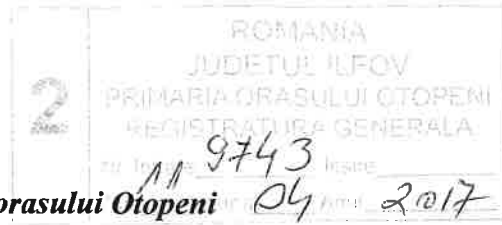 ROMANIA
JUDETUL ILFOV
2 PRIMARIA ORASULUI OTOPENI
REGISTRATURA GENERALA
9743
orasului Otopeni 11 04 2017